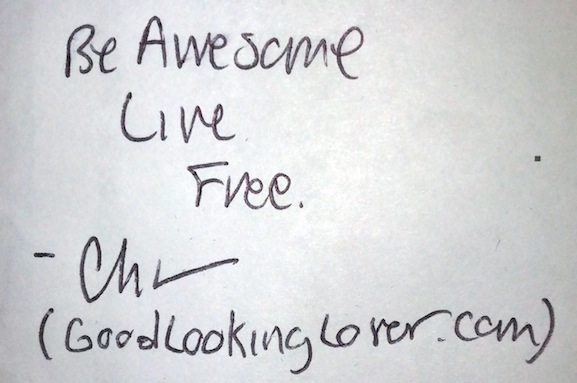 Be Awesome
Live
Free.
(GoodLookingLover.com)